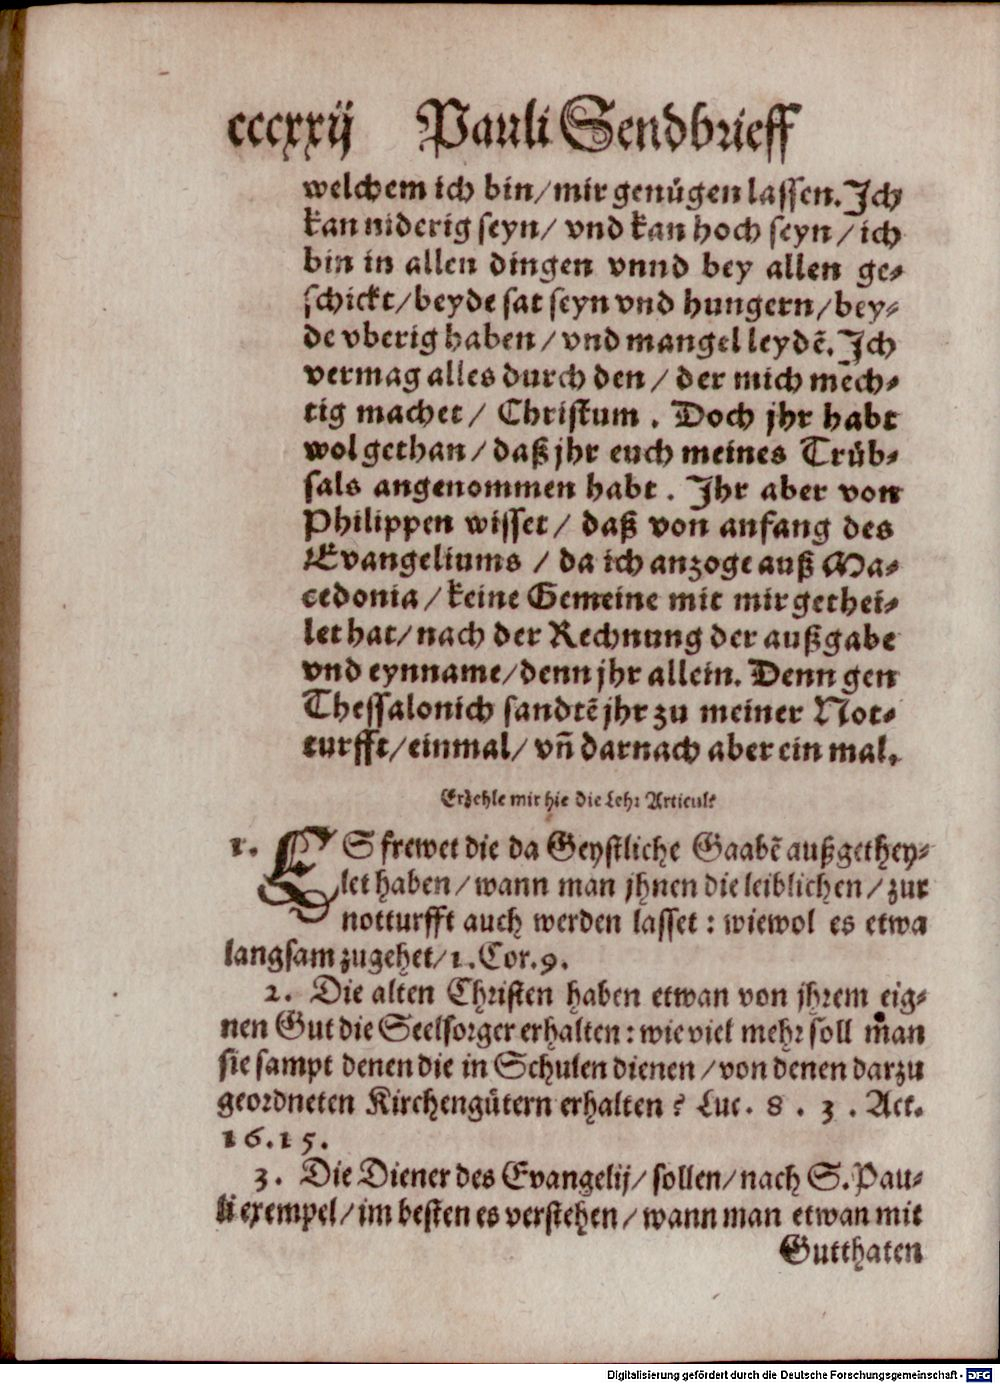 cccxxij Pauli Sendbrieff
welchem ich bin/mir genügen lassen. Jch
kan niderig seyn/ vnd kan hoch seyn/ich
bin in allen dingen vnnd bey allen ge⸗
schickt/beyde sat seyn vnd hungern/bey⸗
de vberig haben/vnd mangel leydẽ. Jch
vermag alles durch den/ der mich mech⸗
tig machet/ Christum. Doch jhr habt
wol gethan/daß jhr euch meines Trüb⸗
sals angenommen habt. Jhr aber von
Philippen wisset/ daß von anfang des
Evangeliums/ da ich anzoge auß Ma⸗
cedonia/keine Gemeine mit mir gethei⸗
let hat/nach der Rechnung der außgabe
vnd eynname/denn jhr allein. Denn gen
Thessalonich sandtẽ jhr zu meiner Not⸗
turfft/einmal/ vñ darnach aber ein mal.
Erzehle mir hie die Lehr Articul?
1. ES frewet die da Geystliche Gaabẽ außgethey⸗
let haben/wann man jhnen die leiblichen/zur
notturfft auch werden lasset: wiewol es etwa
langsam zugehet/1. Cor. 9.
2. Die alten Christen haben etwan von jhrem eig⸗
nen Gut die Seelsorger erhalten: wie viel mehr soll man
sie sampt denen die in Schulen dienen/von denen darzu
geordneten Kirchengütern erhalten? Luc. 8. 3. Act.
16. 15.
3. Die Diener des Evangelij/ sollen/nach S. Pau⸗
li exempel/im besten es verstehen/wann man etwan mit
Gutthaten
Digitalisierung gefördert durch die Deutsche Forschungsgemeinschaft - DFG